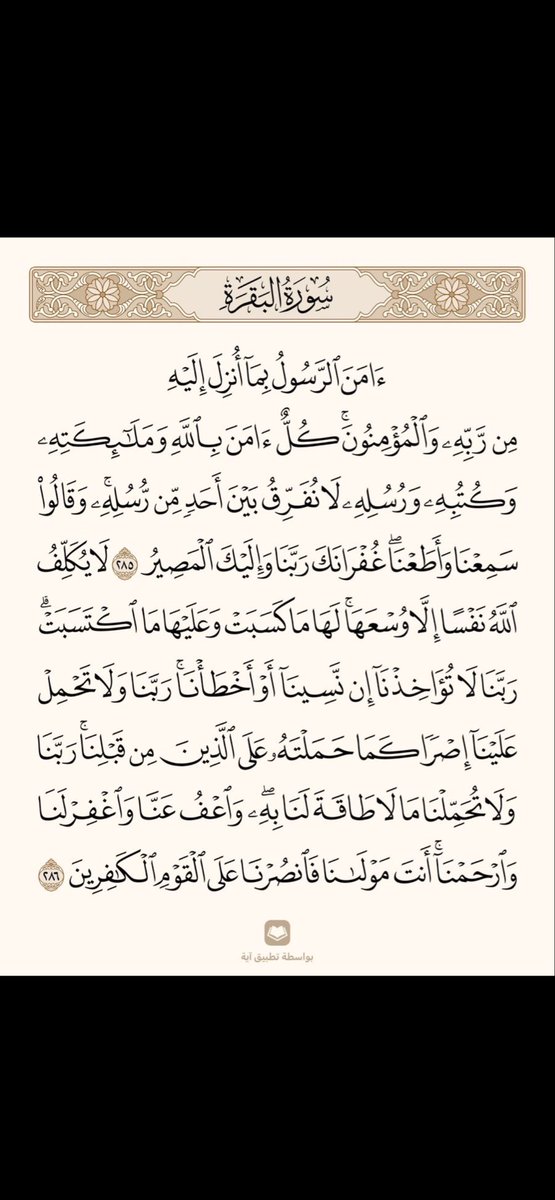 سُورَةُ البَقَرَةِ
ءَامَنَ ٱلرَّسُولُ بِمَآ أُنزِلَ إِلَيْهِ
مِن رَّبِّهِۦ وَٱلْمُؤْمِنُونَۚ كُلٌّ ءَامَنَ بِٱللَّهِ وَمَلَـٰٓئِكَتِهِۦ
وَكُتُبِهِۦ وَرُسُلِهِۦ لَا نُفَرِّقُ بَيْنَ أَحَدٍ مِّن رُّسُلِهِۦۚ وَقَالُوا۟
سَمِعْنَا وَأَطَعْنَاۖ غُفْرَانَكَ رَبَّنَا وَإِلَيْكَ ٱلْمَصِيرُ ٢٨٥ لَا يُكَلِّفُ
ٱللَّهُ نَفْسًا إِلَّا وُسْعَهَاۚ لَهَا مَا كَسَبَتْ وَعَلَيْهَا مَا ٱكْتَسَبَتْۗ
رَبَّنَا لَا تُؤَاخِذْنَآ إِن نَّسِينَآ أَوْ أَخْطَأْنَاۚ رَبَّنَا وَلَا تَحْمِلْ
عَلَيْنَآ إِصْرًا كَمَا حَمَلْتَهُۥ عَلَى ٱلَّذِينَ مِن قَبْلِنَاۚ رَبَّنَا
وَلَا تُحَمِّلْنَا مَا لَا طَاقَةَ لَنَا بِهِۦۖ وَٱعْفُ عَنَّا وَٱغْفِرْ لَنَا
وَٱرْحَمْنَآۚ أَنتَ مَوْلَىٰنَا فَٱنصُرْنَا عَلَى ٱلْقَوْمِ ٱلْكَـٰفِرِينَ ٢٨٦
بواسطة تطبيق آية